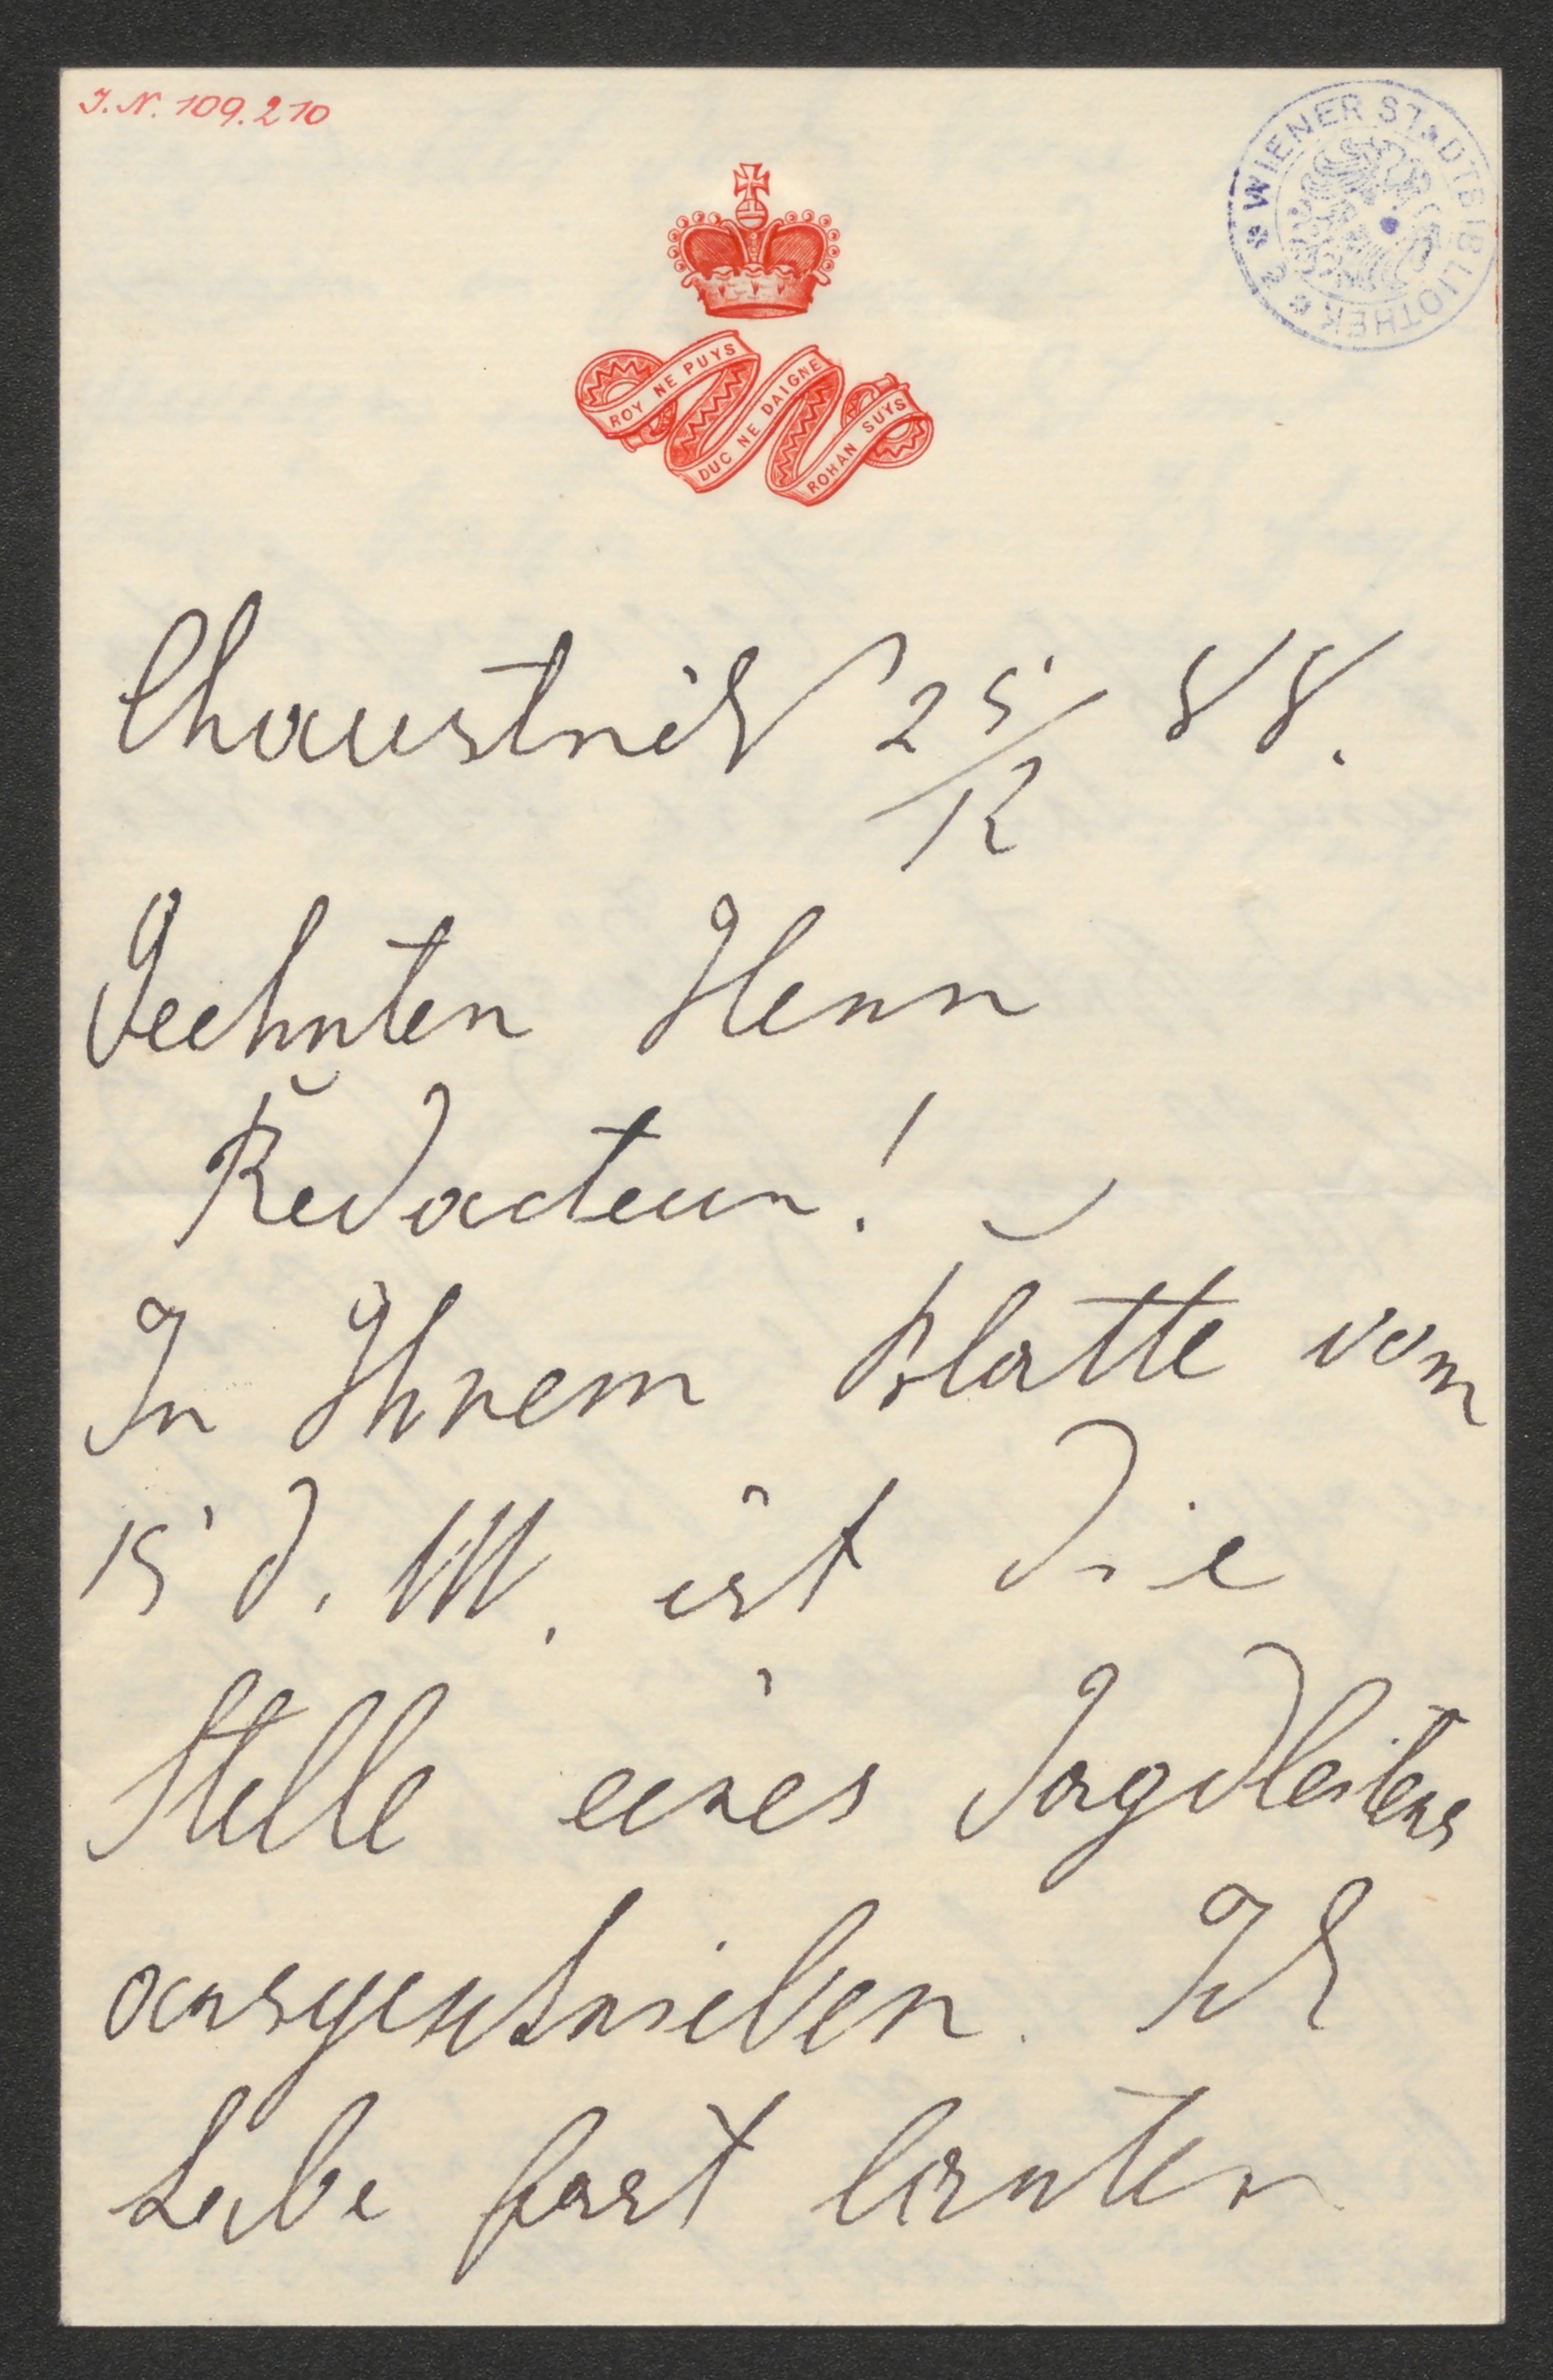 I.N. 109.210
WIENER STADTBIBLIOTHEK 2
ROY NE PUYS
DUC NE DAIGNE
ROHAN SUYS
Choustnik 25/12 88.
Geehrter Herr
Redacteur!
In Ihrem Blatte vom
15 d. M. ist die
Stelle eines Jagdleiters
ausgeschrieben. Ich
habe fast lauter